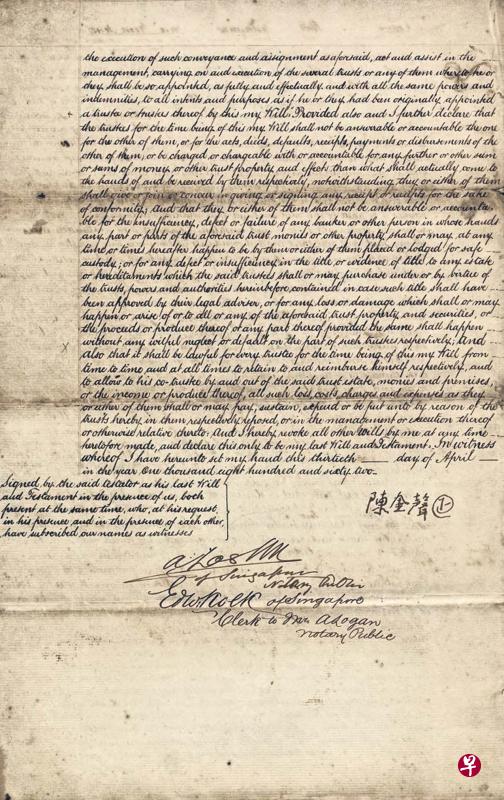 the execution of such conveyance and assignment as aforesaid, act and assist in the
management, carrying on and execution of the several trusts or any of them whereto he or
they shall be so appointed, as fully and effectually and with all the same powers and
indemnities, to all intents and purposes as if he or they had been originally appointed
a trustee or trustees thereof by this my Will: Provided also and I further declare that
the trustees for the time being of this my Will shall not be answerable or accountable the one
for the other of them, or for the acts, deeds, defaults, receipts, payments or disbursements of the
other of them, or be charged or chargeable with or accountable for any further or other sum
or sums of money, or other trust property and effects than what shall actually come to
the hands of and be received by them respectively, notwithstanding they or either of them
shall give or join or concur in giving or signing any receipt or receipts for the sake
of conformity, And that they or either of them shall not be answerable or accounta
ble for the insufficiency, defect or failure of any banker or other person in whose hands
any part or parts of the aforesaid trust monies or other property shall or may, at any
time or times hereafter happen to be by them or either of them placed or lodged for safe
custody; or for any defect or insufficiency in the title or evidence of title to any estate
or hereditaments which the said trustees shall or may purchase under or by virtue of
the trusts, powers and authorities hereinbefore contained in case such title shall have
been approved by their legal adviser, or for any loss or damage which shall or may
happen or arise of or to all or any of the aforesaid trust property and securities, or
the proceeds or produce thereof or any part thereof provided the same shall happen
without any wilful neglect or default on the part of such trustees respectively; And
also that it shall be lawful for every trustee for the time being of this my Will from
time to time and at all times to retain to and reimburse himself respectively, and
to allow to his co-trustee by and out of the said trust estate, monies and premises,
or the income or produce thereof, all such loss, costs, charges and expenses as they
or either of them shall or may pay, sustain, expend or be put unto by reason of the
trusts hereby in them respectively reposed, or in the management or execution thereof
or otherwise relative thereto: And I hereby revoke all other Wills by me at any time
heretofore made, and declare this only to be my last Will and Testament. In witness
whereof I have hereunto set my hand this thirtieth day of April
in the year One thousand eight hundred and sixty two
Signed by the said testator as his last Will
and Testament in the presence of us, both
present at the same time, who, at his request,
in his presence and in the presence of each other,
have subscribed our names as witnesses
陳金聲
of Singapore
Notary Public
of Singapore
Clerk to Mr. A Logan
Notary Public
早